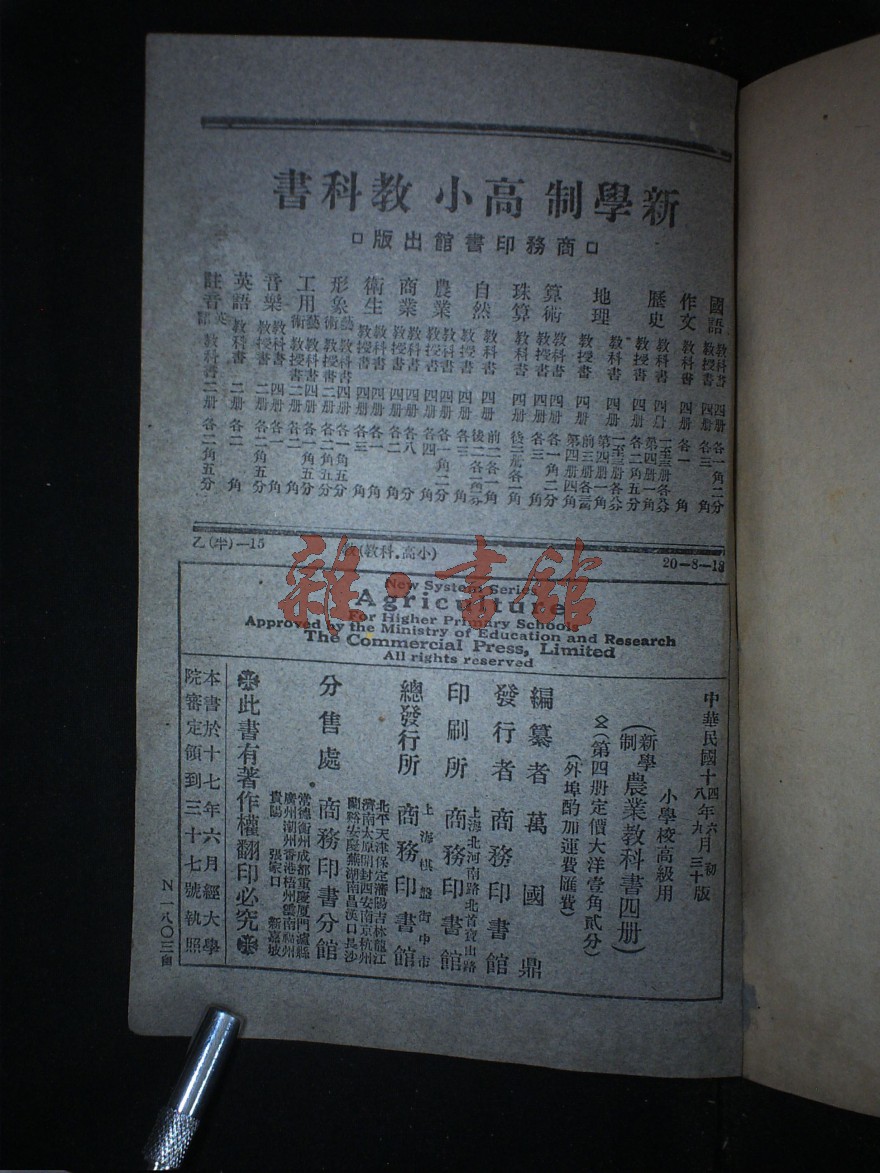 新學制高小教科書
商務印書館出版
國語 教科書 四册 各一角二分
教授書 四册 各三角
作文 教科書 四册 各一角
歷史 教科書 四册 一至三册各八分 第四册一角
教授書 四册 各二角五分
地理 教科書 四册 一至三册各八分 第四册一角
教授書 四册
算術 教科書 四册 各一角二分
教授書 四册 各三角
珠算 教科書 四册 後二册各一角
自然 教科書 四册
教授書 四册 各三角
農業 教科書 四册 各一角二分
教授書 四册 各四角
商業 教科書 四册 各八分
教授書 四册 各二角
衛生 教科書 四册 各一角
教授書 四册 各三角
形象藝術 教科書 四册 各一角五分
教授書 二册 各二角五分
工用藝術 教科書 四册 各一角五分
教授書 二册 各二角
音樂 教科書 四册 各一角
教授書 二册 各二角五分
英語 教科書 二册 各二角
註音英語 教科書 二册 各二角五分
乙(半)—15
教(小高.科教)
20—8—18
New System Series
Agriculture
For Higher Primary Schools
Approved by the Ministry of Education and Research
The Commercial Press, Limited
All rights reserved
中華民國十四年六月初版
十八年九月三十版
小學校高級用
(新學制農業教科書四册)
(第四册定價大洋壹角貳分)
(外埠酌加運費匯費)
編纂者 萬國鼎
發行者 商務印書館
印刷所 上海北河南路北首寶山路 商務印書館
總發行所 上海棋盤街中市 商務印書館
分售處 商務印書分館
北平天津保定瀋陽吉林龍江
濟南太原開封西安南京杭州
蘭谿安慶蕪湖南昌漢口長沙
常德衡州成都重慶厦門瀘縣
廣州潮州香港梧州雲南福州
貴陽 張家口 新嘉坡
此書有著作權翻印必究
本書於十七年六月經大學
院審定領到三十七號執照
N一八〇三
雜·書館